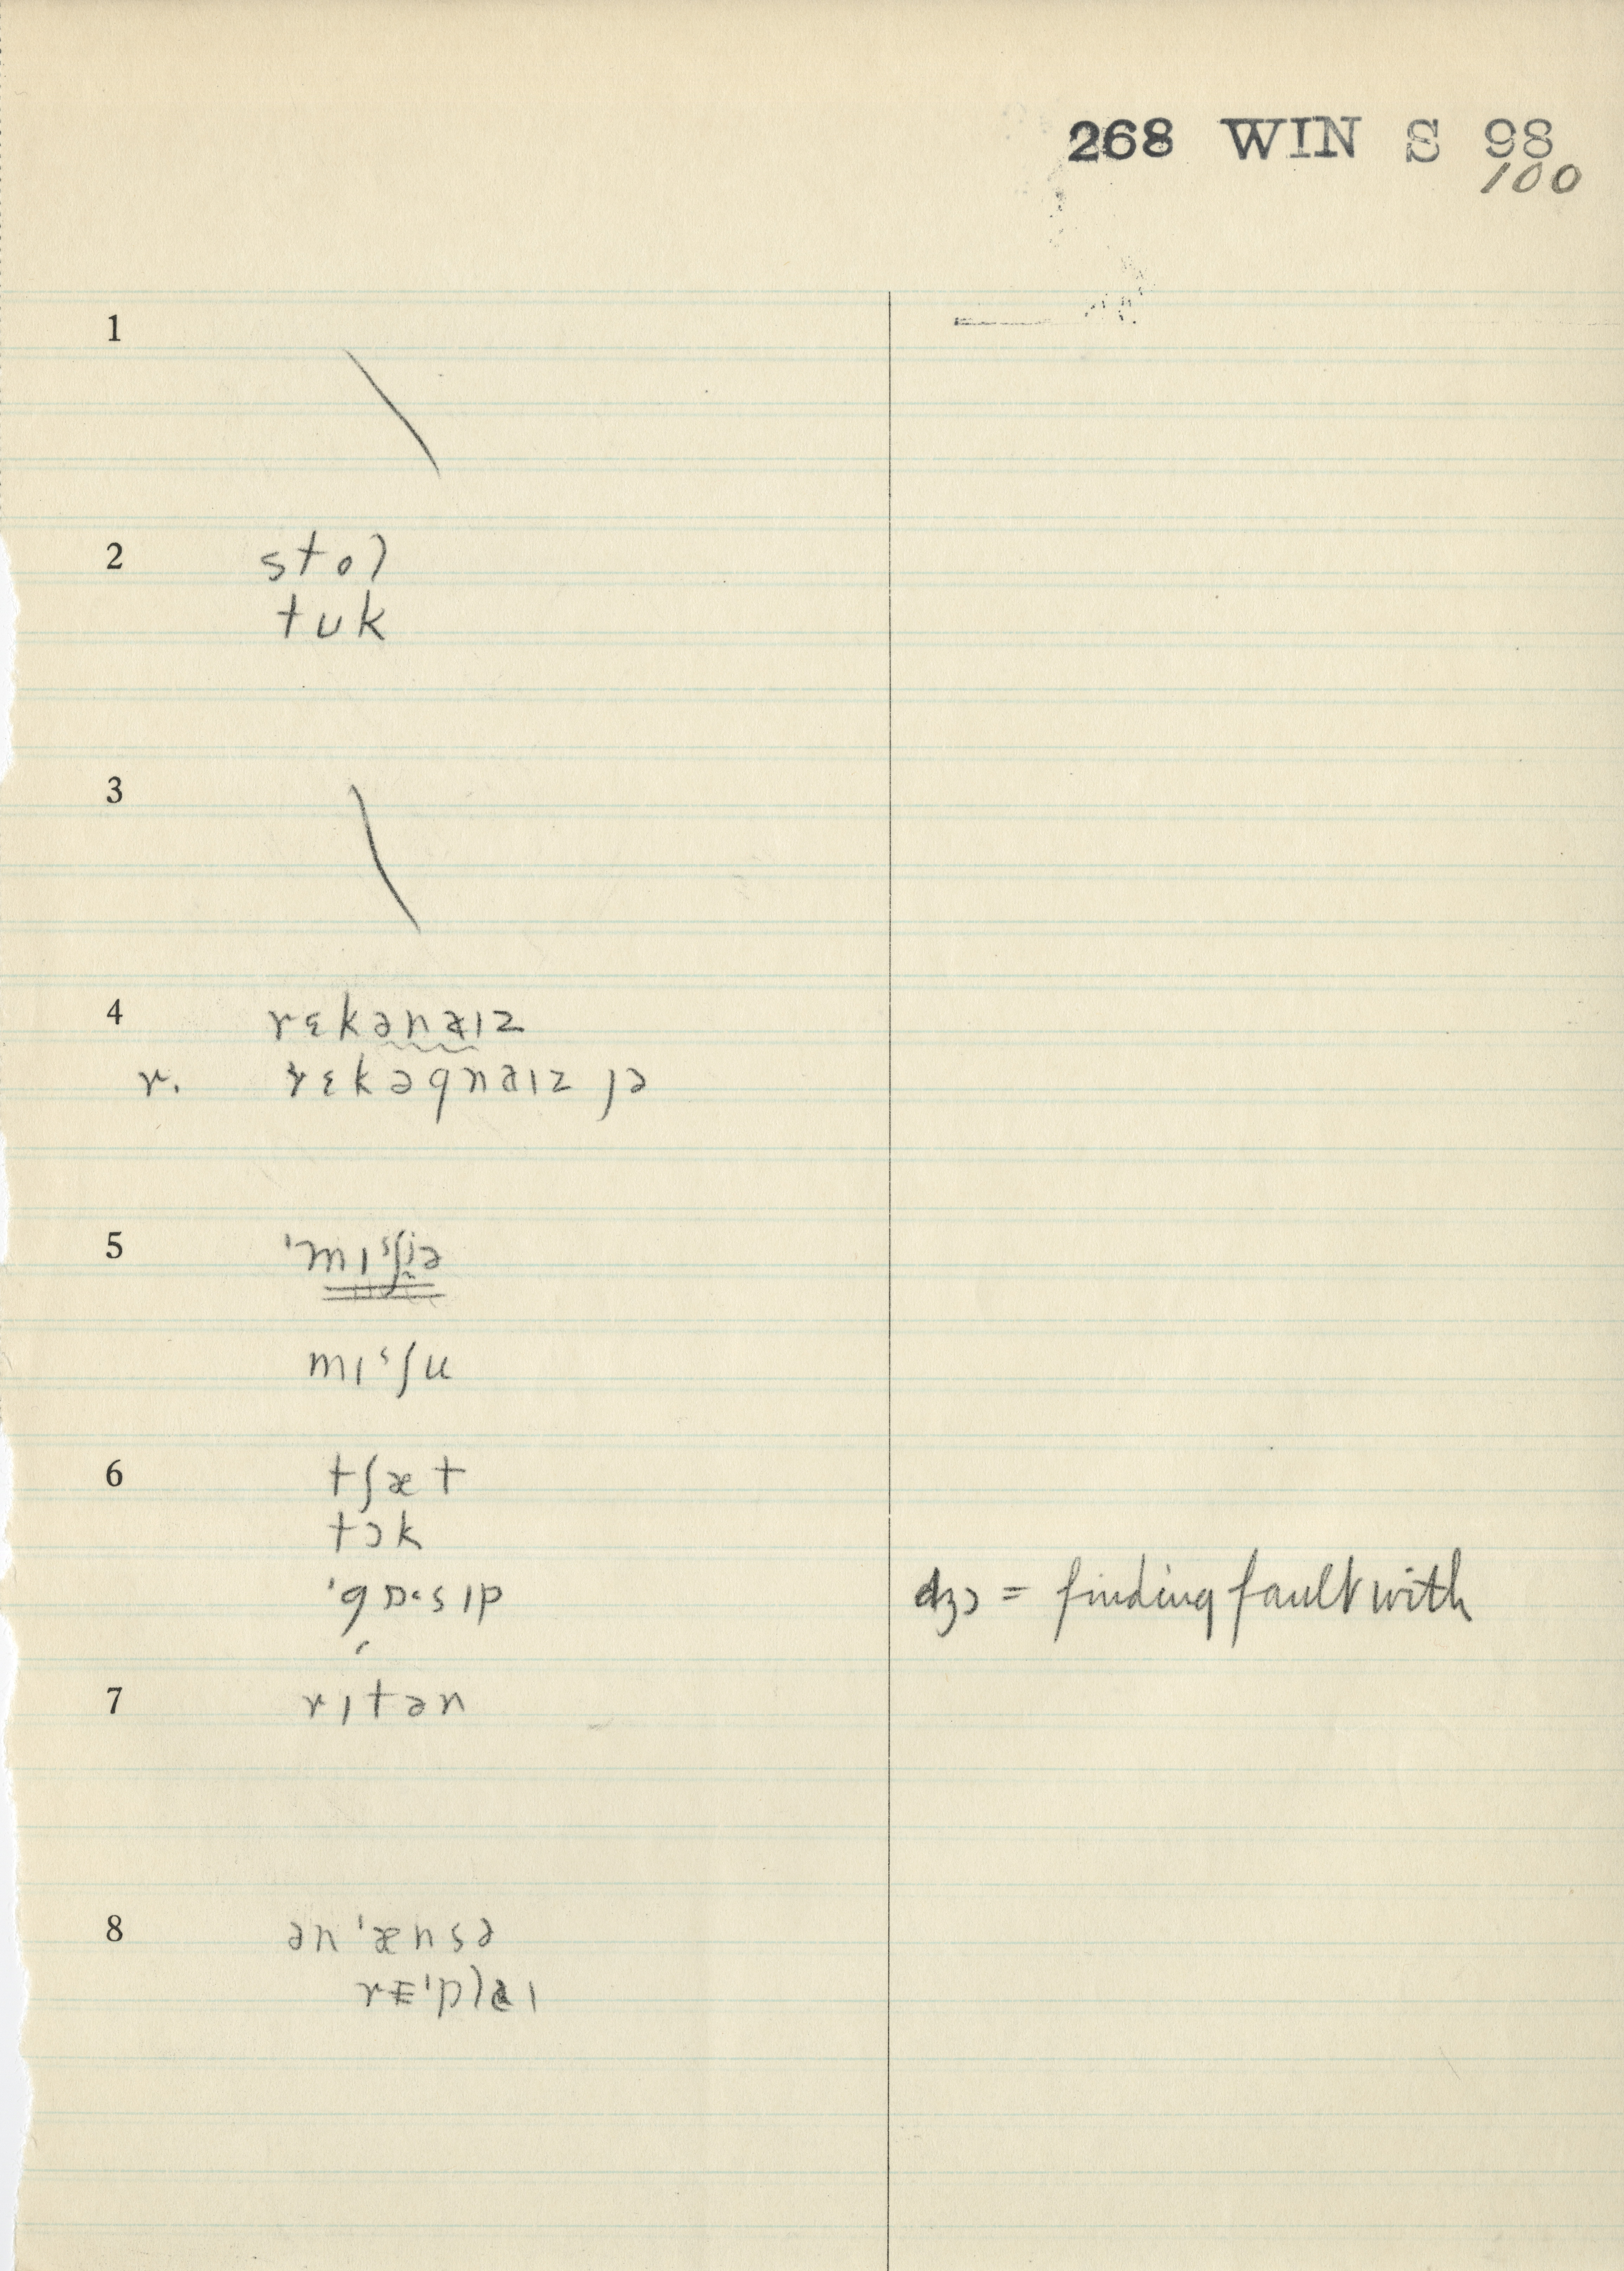 268 WIN S 98
100
1 \
2 stol
tuk
3 \
4 rɛkənaɪz
r. rɛkəgnaɪz jə
5 'mɪˢʃjə
mɪˢʃu
6 tʃæt
tɔk
'gɒ·sɪp dʒɔ = finding fault with
7 rɪtən
8 ən'ænsə
rɛ'plaɪ